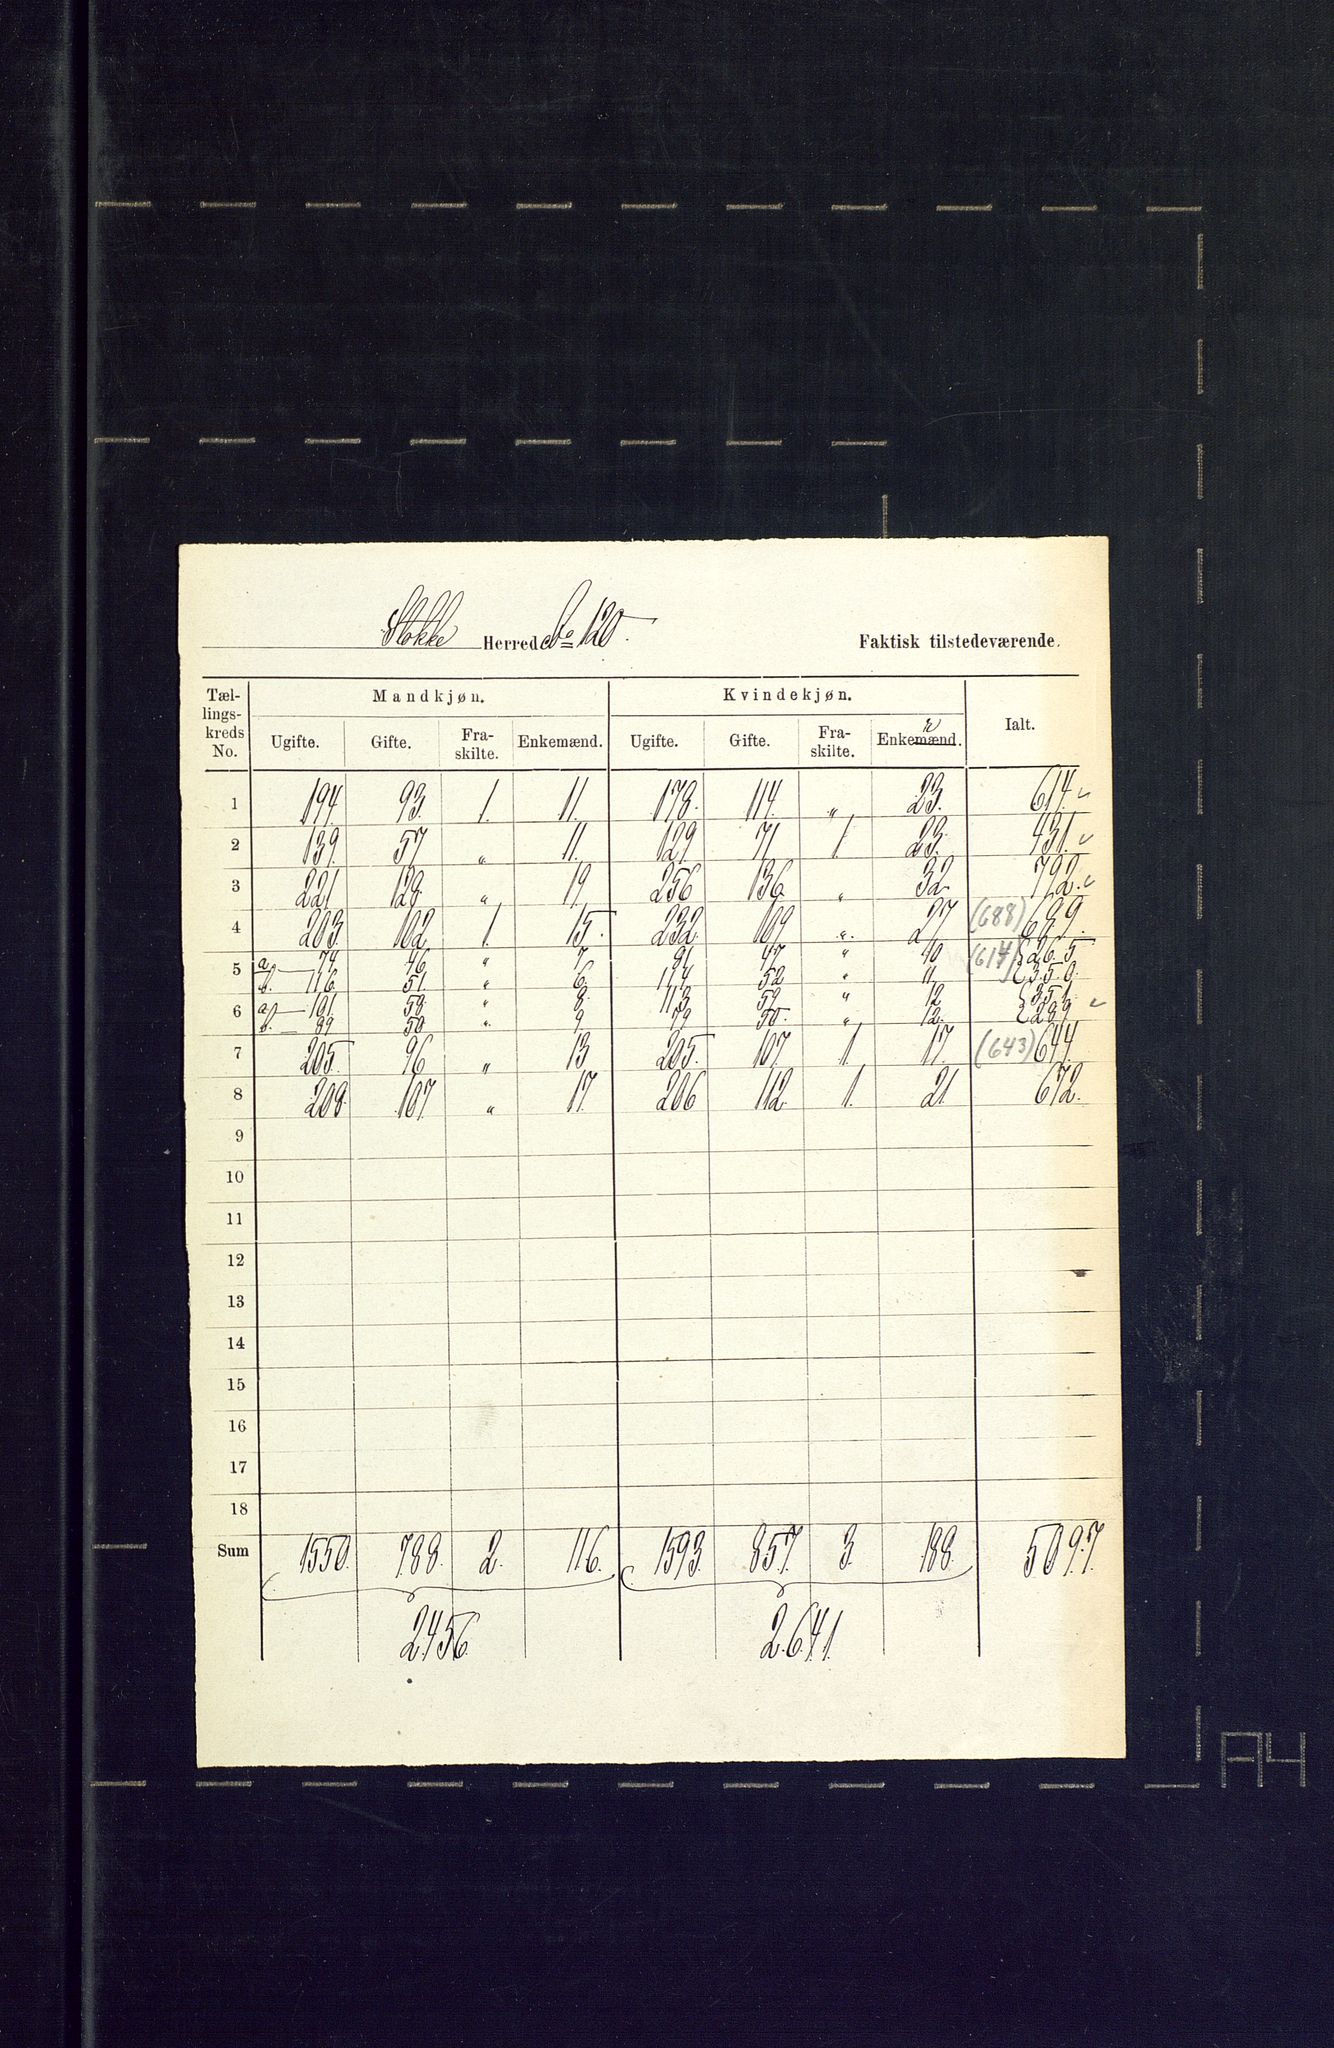 Stokke Herred No 120.
Faktisk tilstedeværende.
Tællingskreds No. Mandkjøn. Kvindekjøn. Ialt.
Ugifte. Gifte. Fraskilte. Enkemænd. Ugifte. Gifte. Fraskilte. Enkemænd. r
1 194. 93. 1. 11. 178. 114. „ 23. 614. ✓
2 139. 57 „ 11. 129. 71 1. 23. 431. ✓
3 221 128. „ 19 256 136 „ 32 792. ✓
4 203. 102 1. 15. 232. 109 „ 27 (688) 689.
5 a 74 46 „ 7 81 47 „ 10 (614) { 265
b. 116 51. „ 6 114 52 „ 11 { 350.
6 a 101 58 „ 8. 113 59 „ 12 { 351
b. 89 50 „ 9 79 50. „ 12. { 289 ✓
7 205. 96 „ 13 205. 107 1 17. (643) 644.
8 208. 107. „ 17. 206 112. 1. 21 672.
9
10
11
12
13
14
15
16
17
18
Sum 1550. 788. 2. 116. 1593. 857. 3. 188. 5097.
2456. 2641.
A4